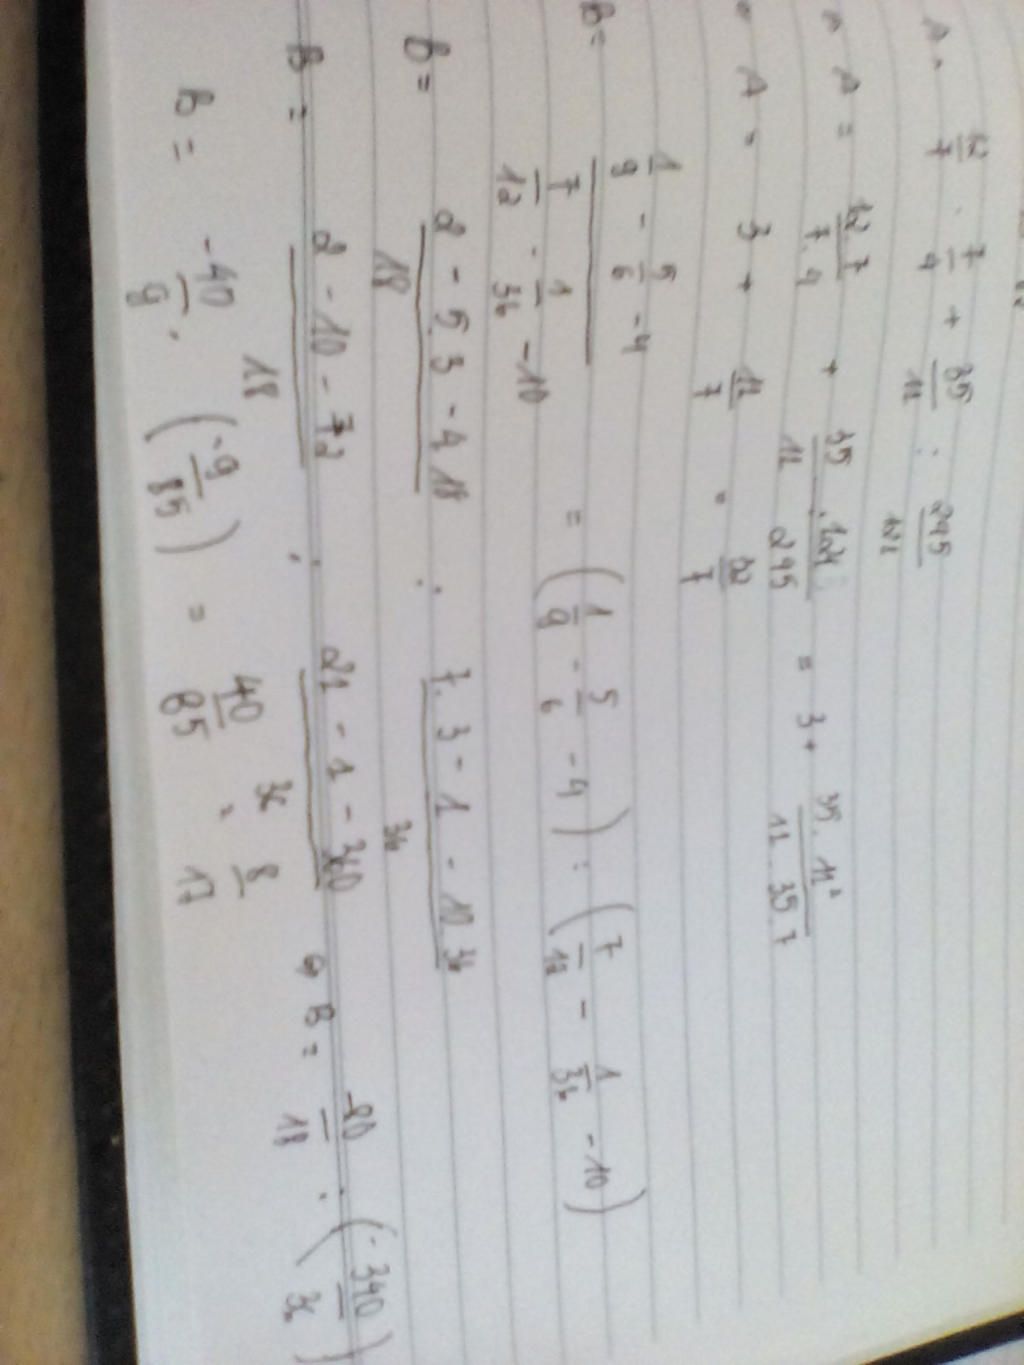 A = 12/7 . 7/4 + 35/11 : 245/121
A = 12.7/7.4 + 35/11 . 121/245 = 3 + 35.11²/11.35.7
A = 3 + 11/7 = 32/7
B = (1/9 - 5/6 - 4)/(7/12 - 1/36 - 10) = (1/9 - 5/6 - 4) : (7/12 - 1/36 - 10)
B = (2 - 5.3 - 4.18)/18 : (7.3 - 1 - 10.36)/36
B = (2 - 10 - 72)/18 : (21 - 1 - 360)/36 => B = -80/18 : (-340/36)
B = -40/9 . (-9/85) = 40/85 = 8/17